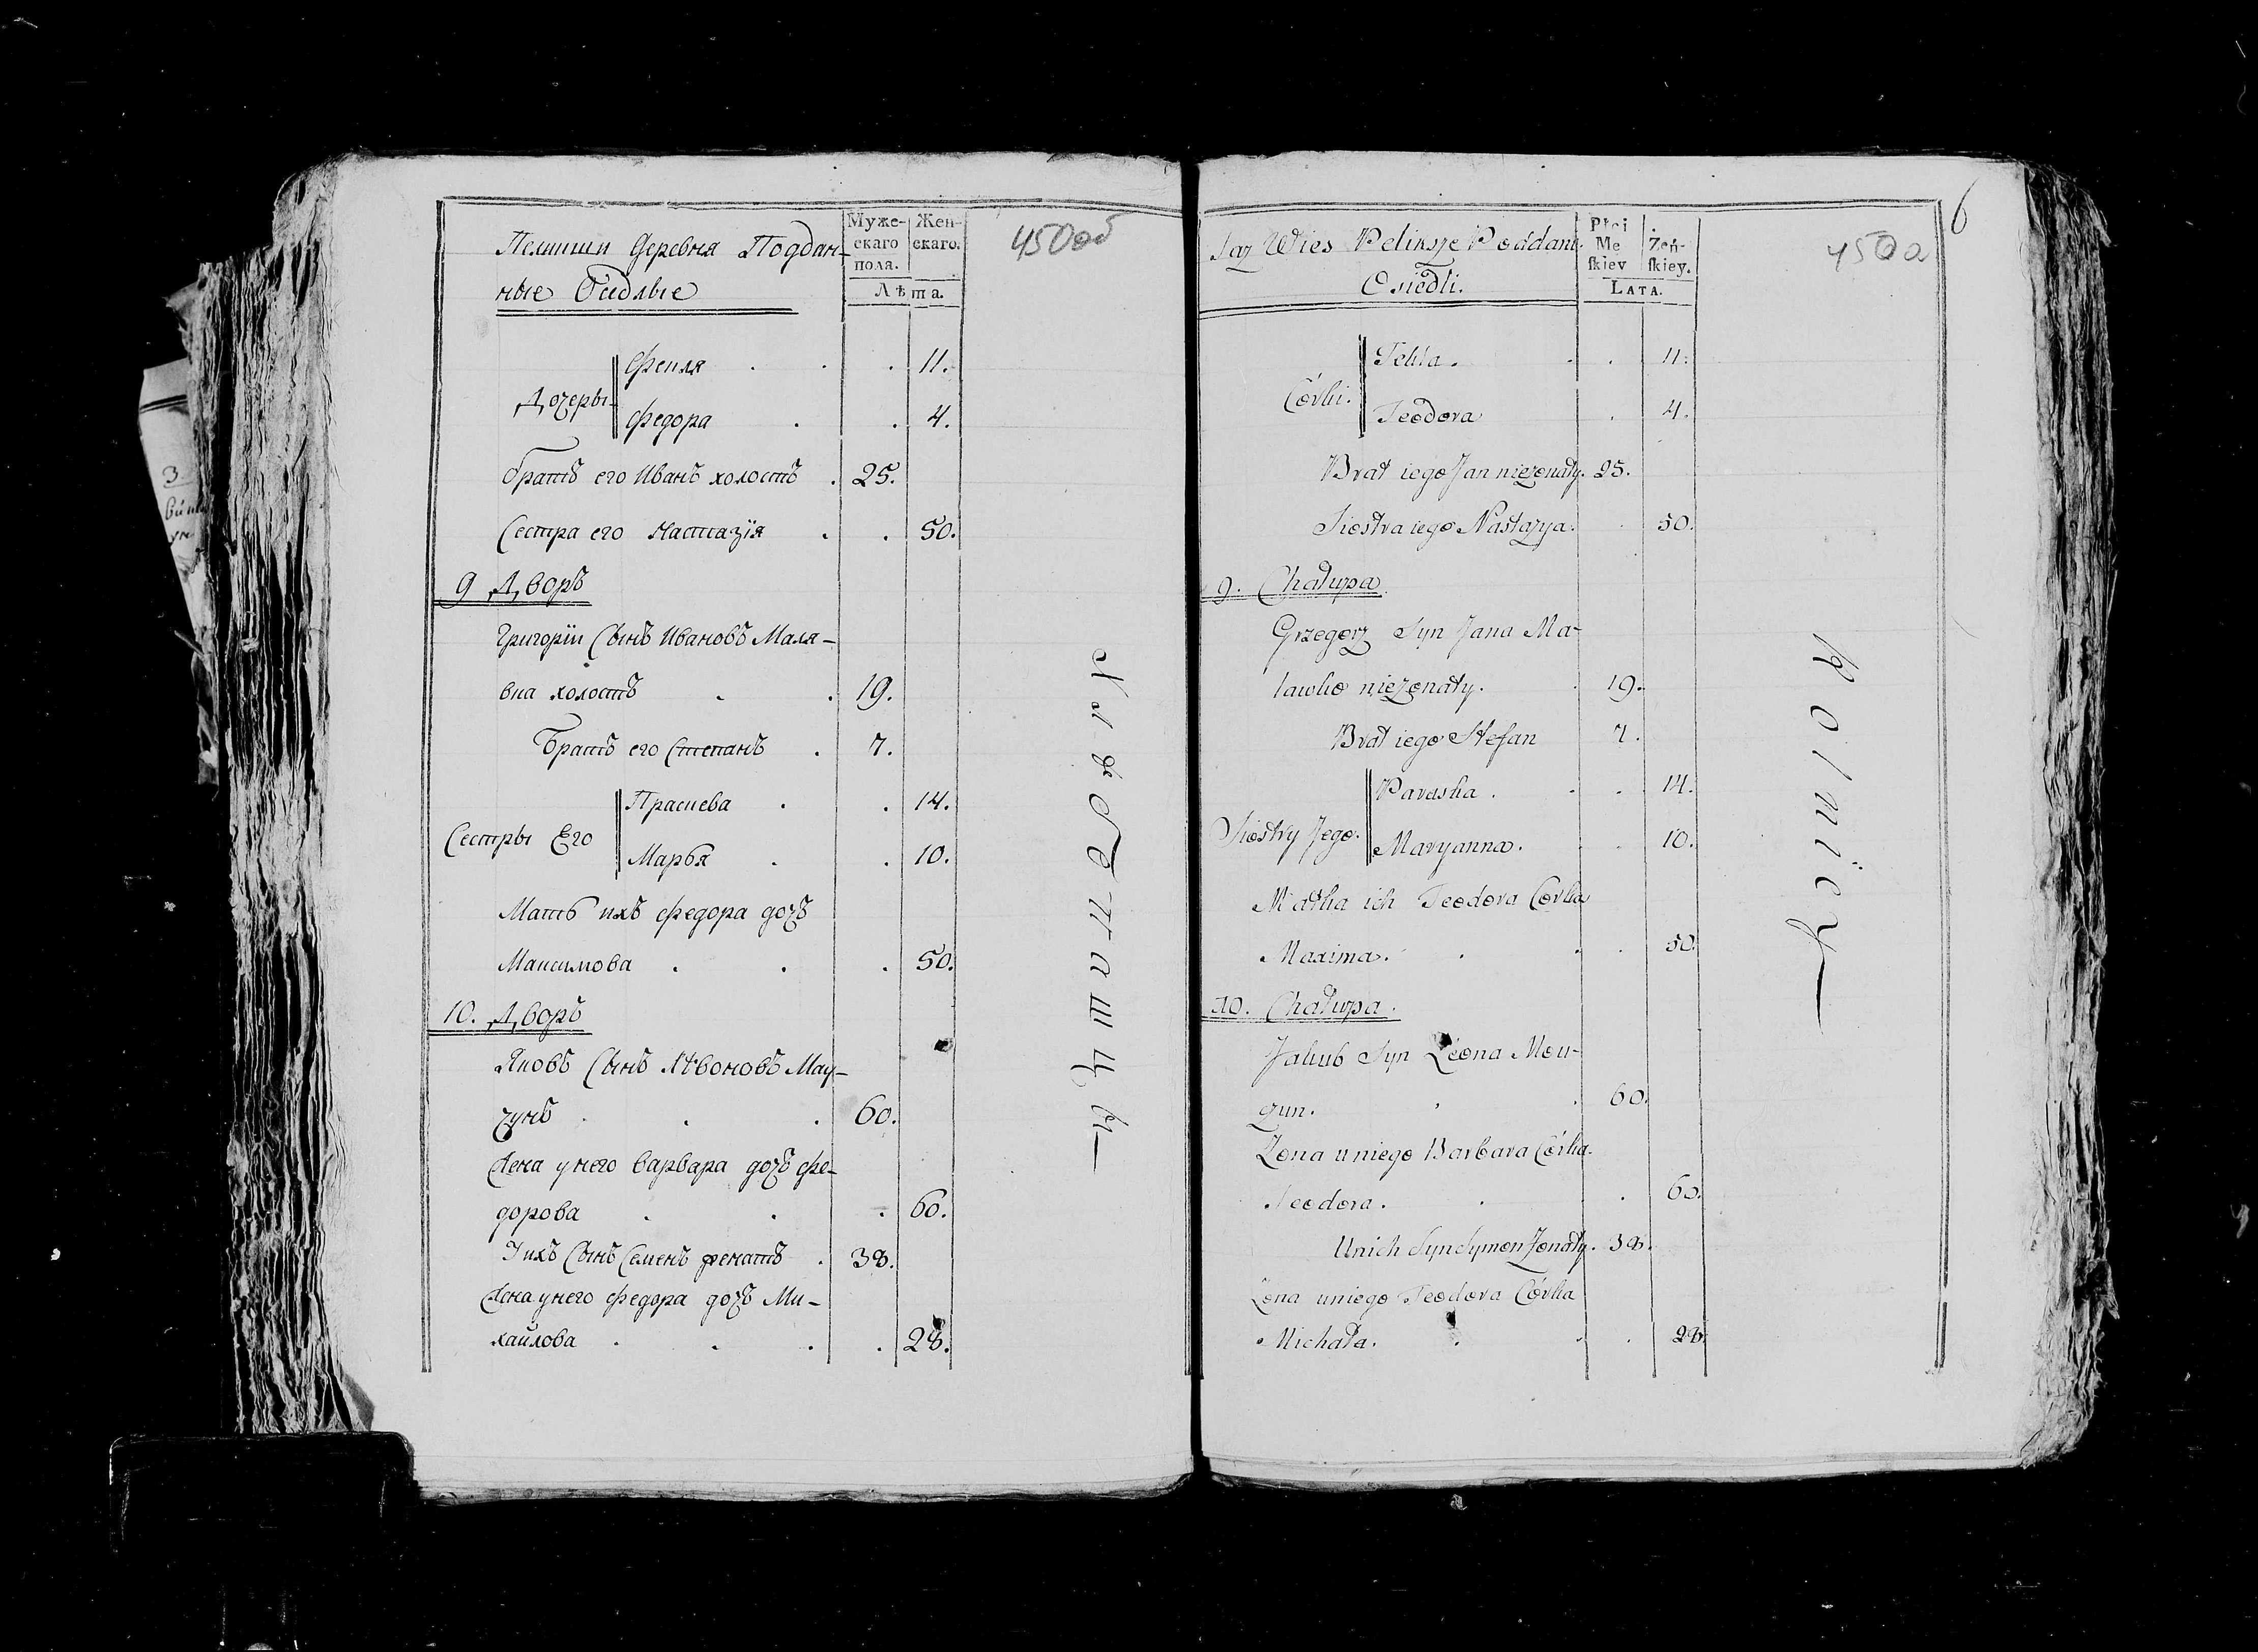 Пелишки деревня Поддан-
ные Осѣдлые
Муже-
скаго
пола.
Жен-
скаго.
Лѣта.
450об
Дочеры
Фекля . . . 11.
Федора . . 4.
братъ его Иванъ холостъ . 25.
Сестра его Настазія . . 50.
9 Дворъ
Григорій Сынъ Ивановъ Маля-
вка холостъ . . 19.
Братъ его Степанъ . 7.
Сестры Его
Праскева . . 14.
Марья . . 10.
Мать ихъ Федора дочъ
Максимова . . . 50.
10. Дворъ
Яковъ Сынъ Лѣвоновъ Мау-
чунъ . . . 60.
Жена у него варвара дочъ Фе-
дорова . . . 60.
У ихъ Сынъ Семенъ женатъ . 38.
Жена у него Федора дочъ Ми-
хайлова . . . . 28.
6
Taż Wies Peliksze Poddani
Osiedli.
Płci
Me
skiey
Żeń-
skiey.
Lata.
450a
Córki.
Tekla . . . 11.
Teodora . 4.
Brat iego Jan nieżonaty. 25.
Siostra iego Nastazya. . 50.
9. Chałupa
Grzegorz Syn Jana Ma-
lawko nieżonaty. . 19.
Brat iego Stefan 7.
Siostry Jego.
Paraska . . . 14.
Maryanna. . . 10.
Matka ich Teodora Córka
Maxima. . . . 50.
10. Chałupa.
Jakub Syn Leona Mou-
czun. . . 60.
Żona u niego Barbara Córka
Teodora. . . 60.
U nich Syn Symon Żonaty. 38.
Żona u niego Teodora Córka
Michała. . . . 28.